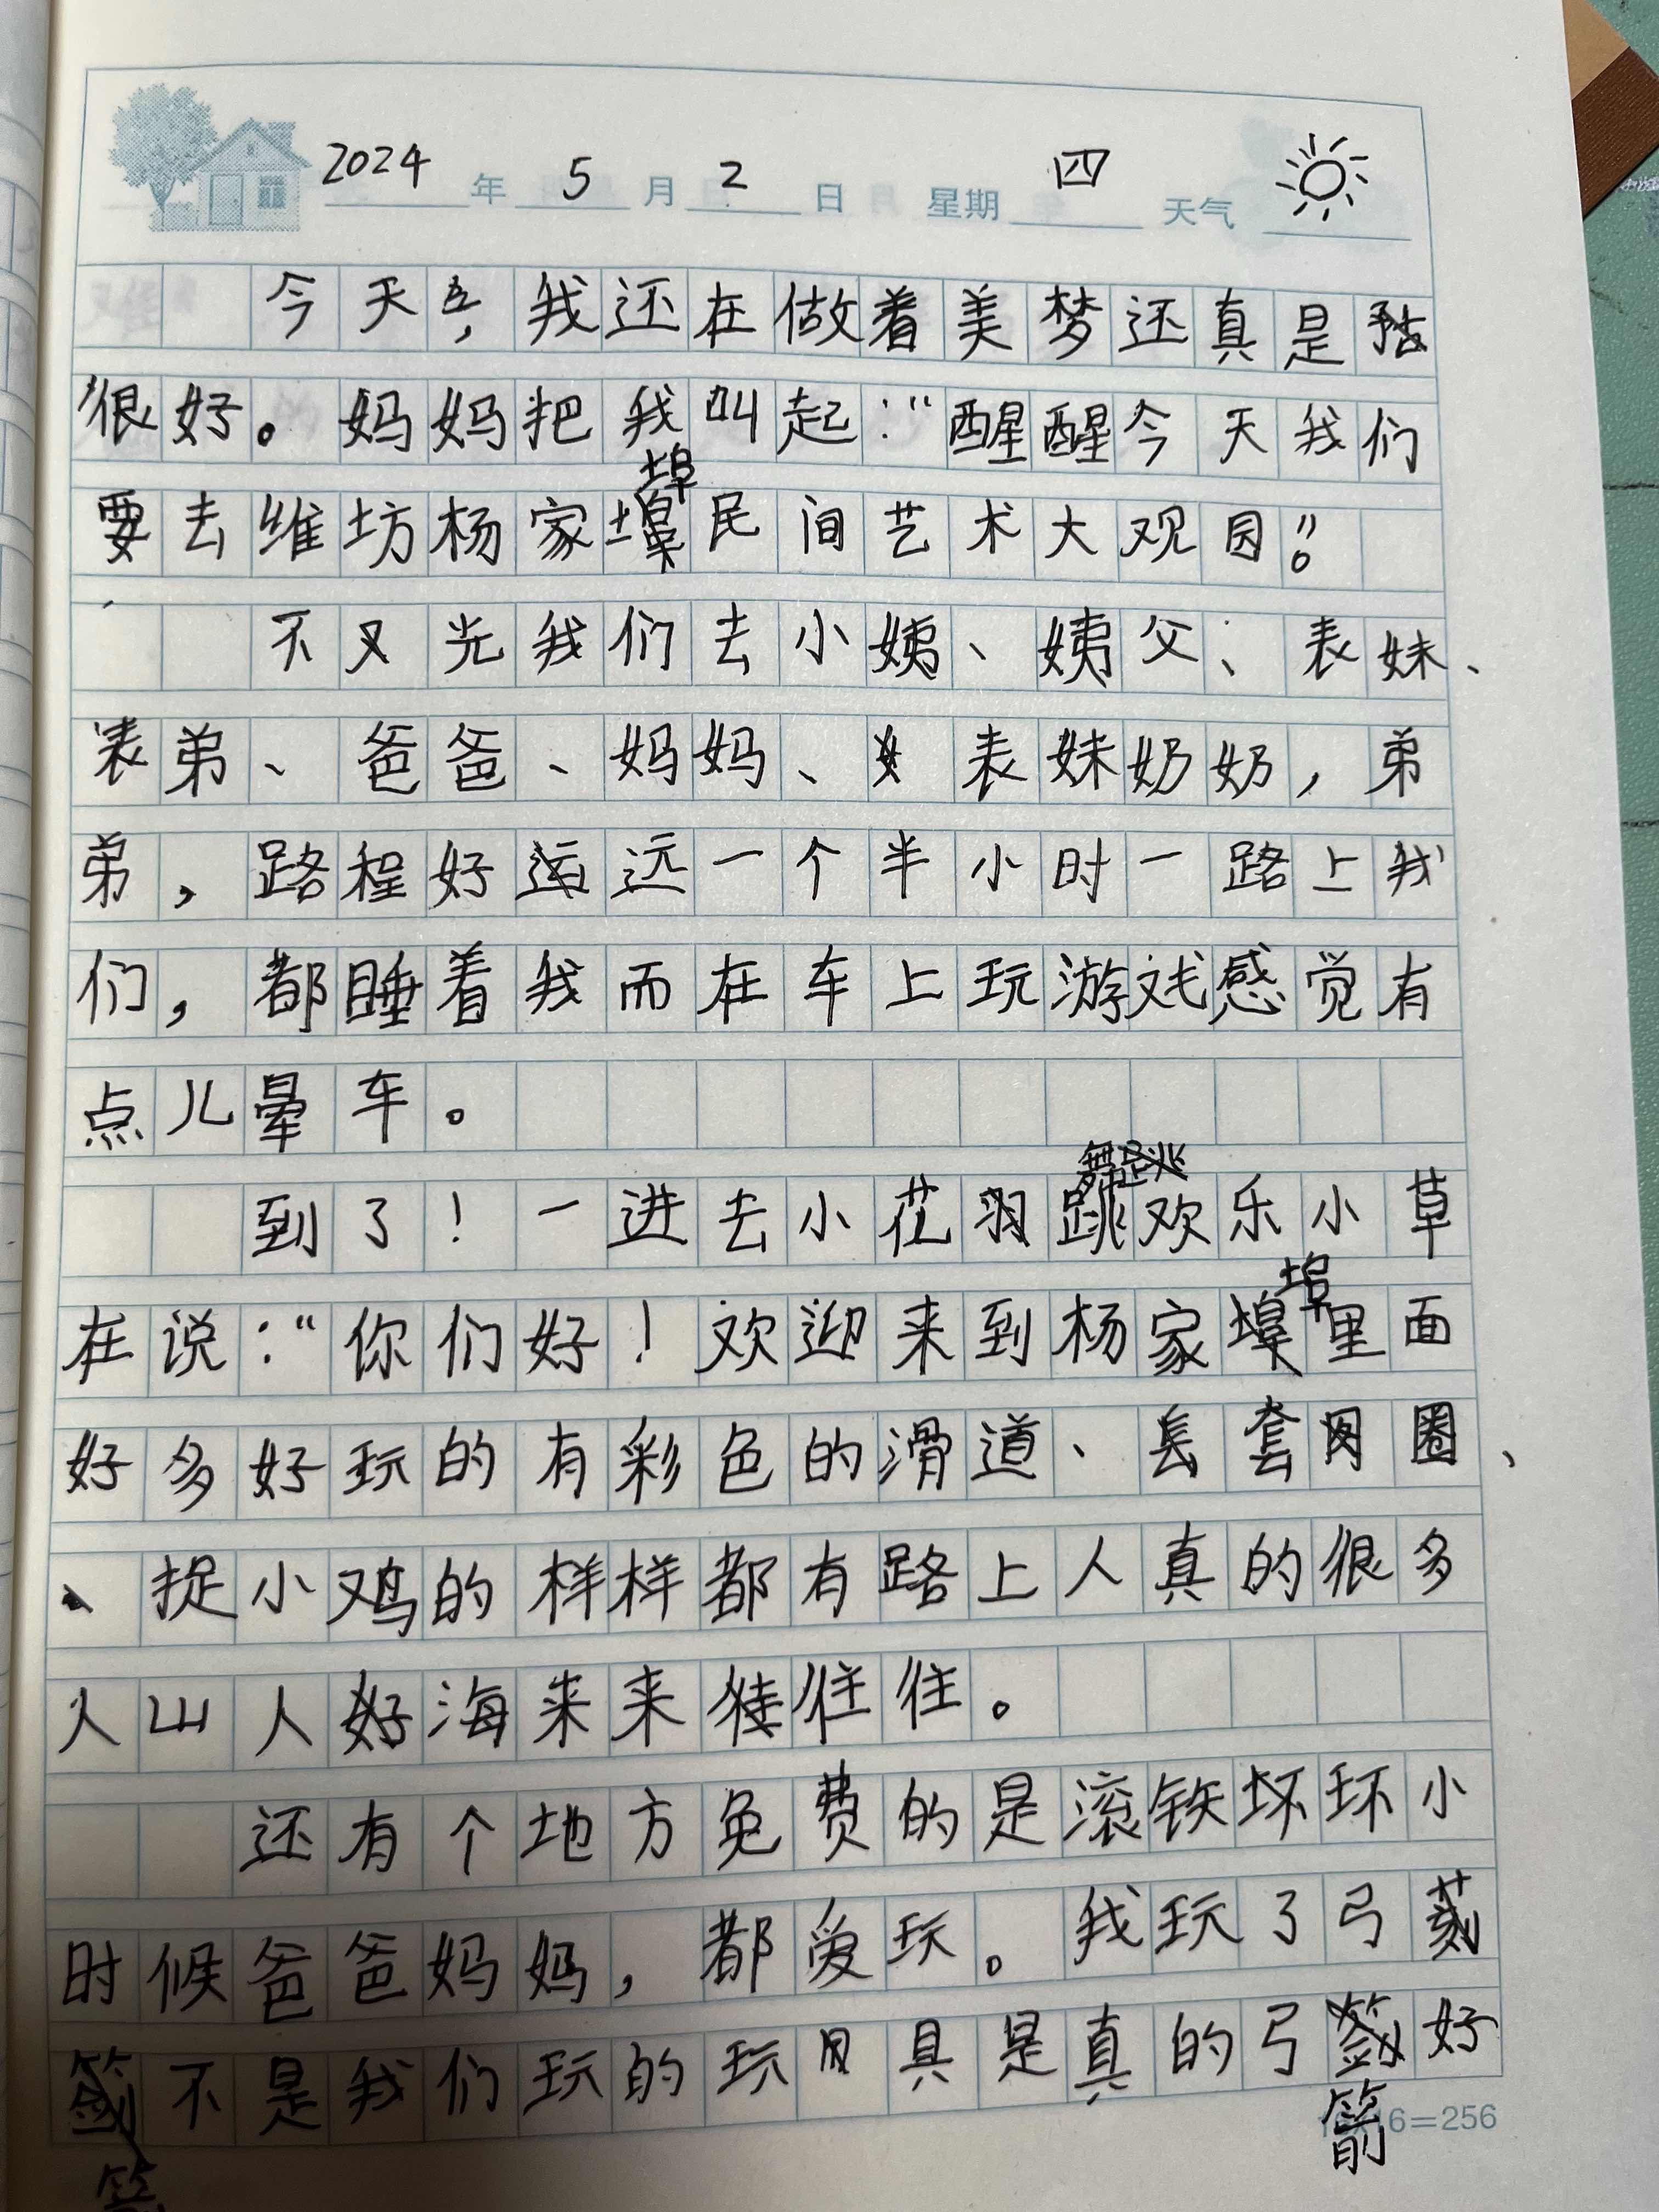 2024年 5月 2日 星期 四 天气
今天,我还在做着美梦还真是
很好。妈妈把我叫起:“醒醒今天我们
埠
要去维坊杨家民间艺术大观园”。
不又光我们去小姨、姨父、表妹、
表弟、爸爸、妈妈、表妹奶奶,弟
弟,路程好远一个半小时一路上我
们,都睡着我而在车上玩游戏感觉有
点儿晕车。
舞
到了!一进去小花跳欢乐小草
埠
在说:“你们好!欢迎来到杨家里面
好多好玩的有彩色的滑道、套圈、
、捉小鸡的样样都有路上人真的很多
人山人海来来往往。
还有个地方免费的是滚铁坏环小
时候爸爸妈妈,都爱玩。我玩了弓
不是我们玩的玩具是真的弓好
箭
16=256